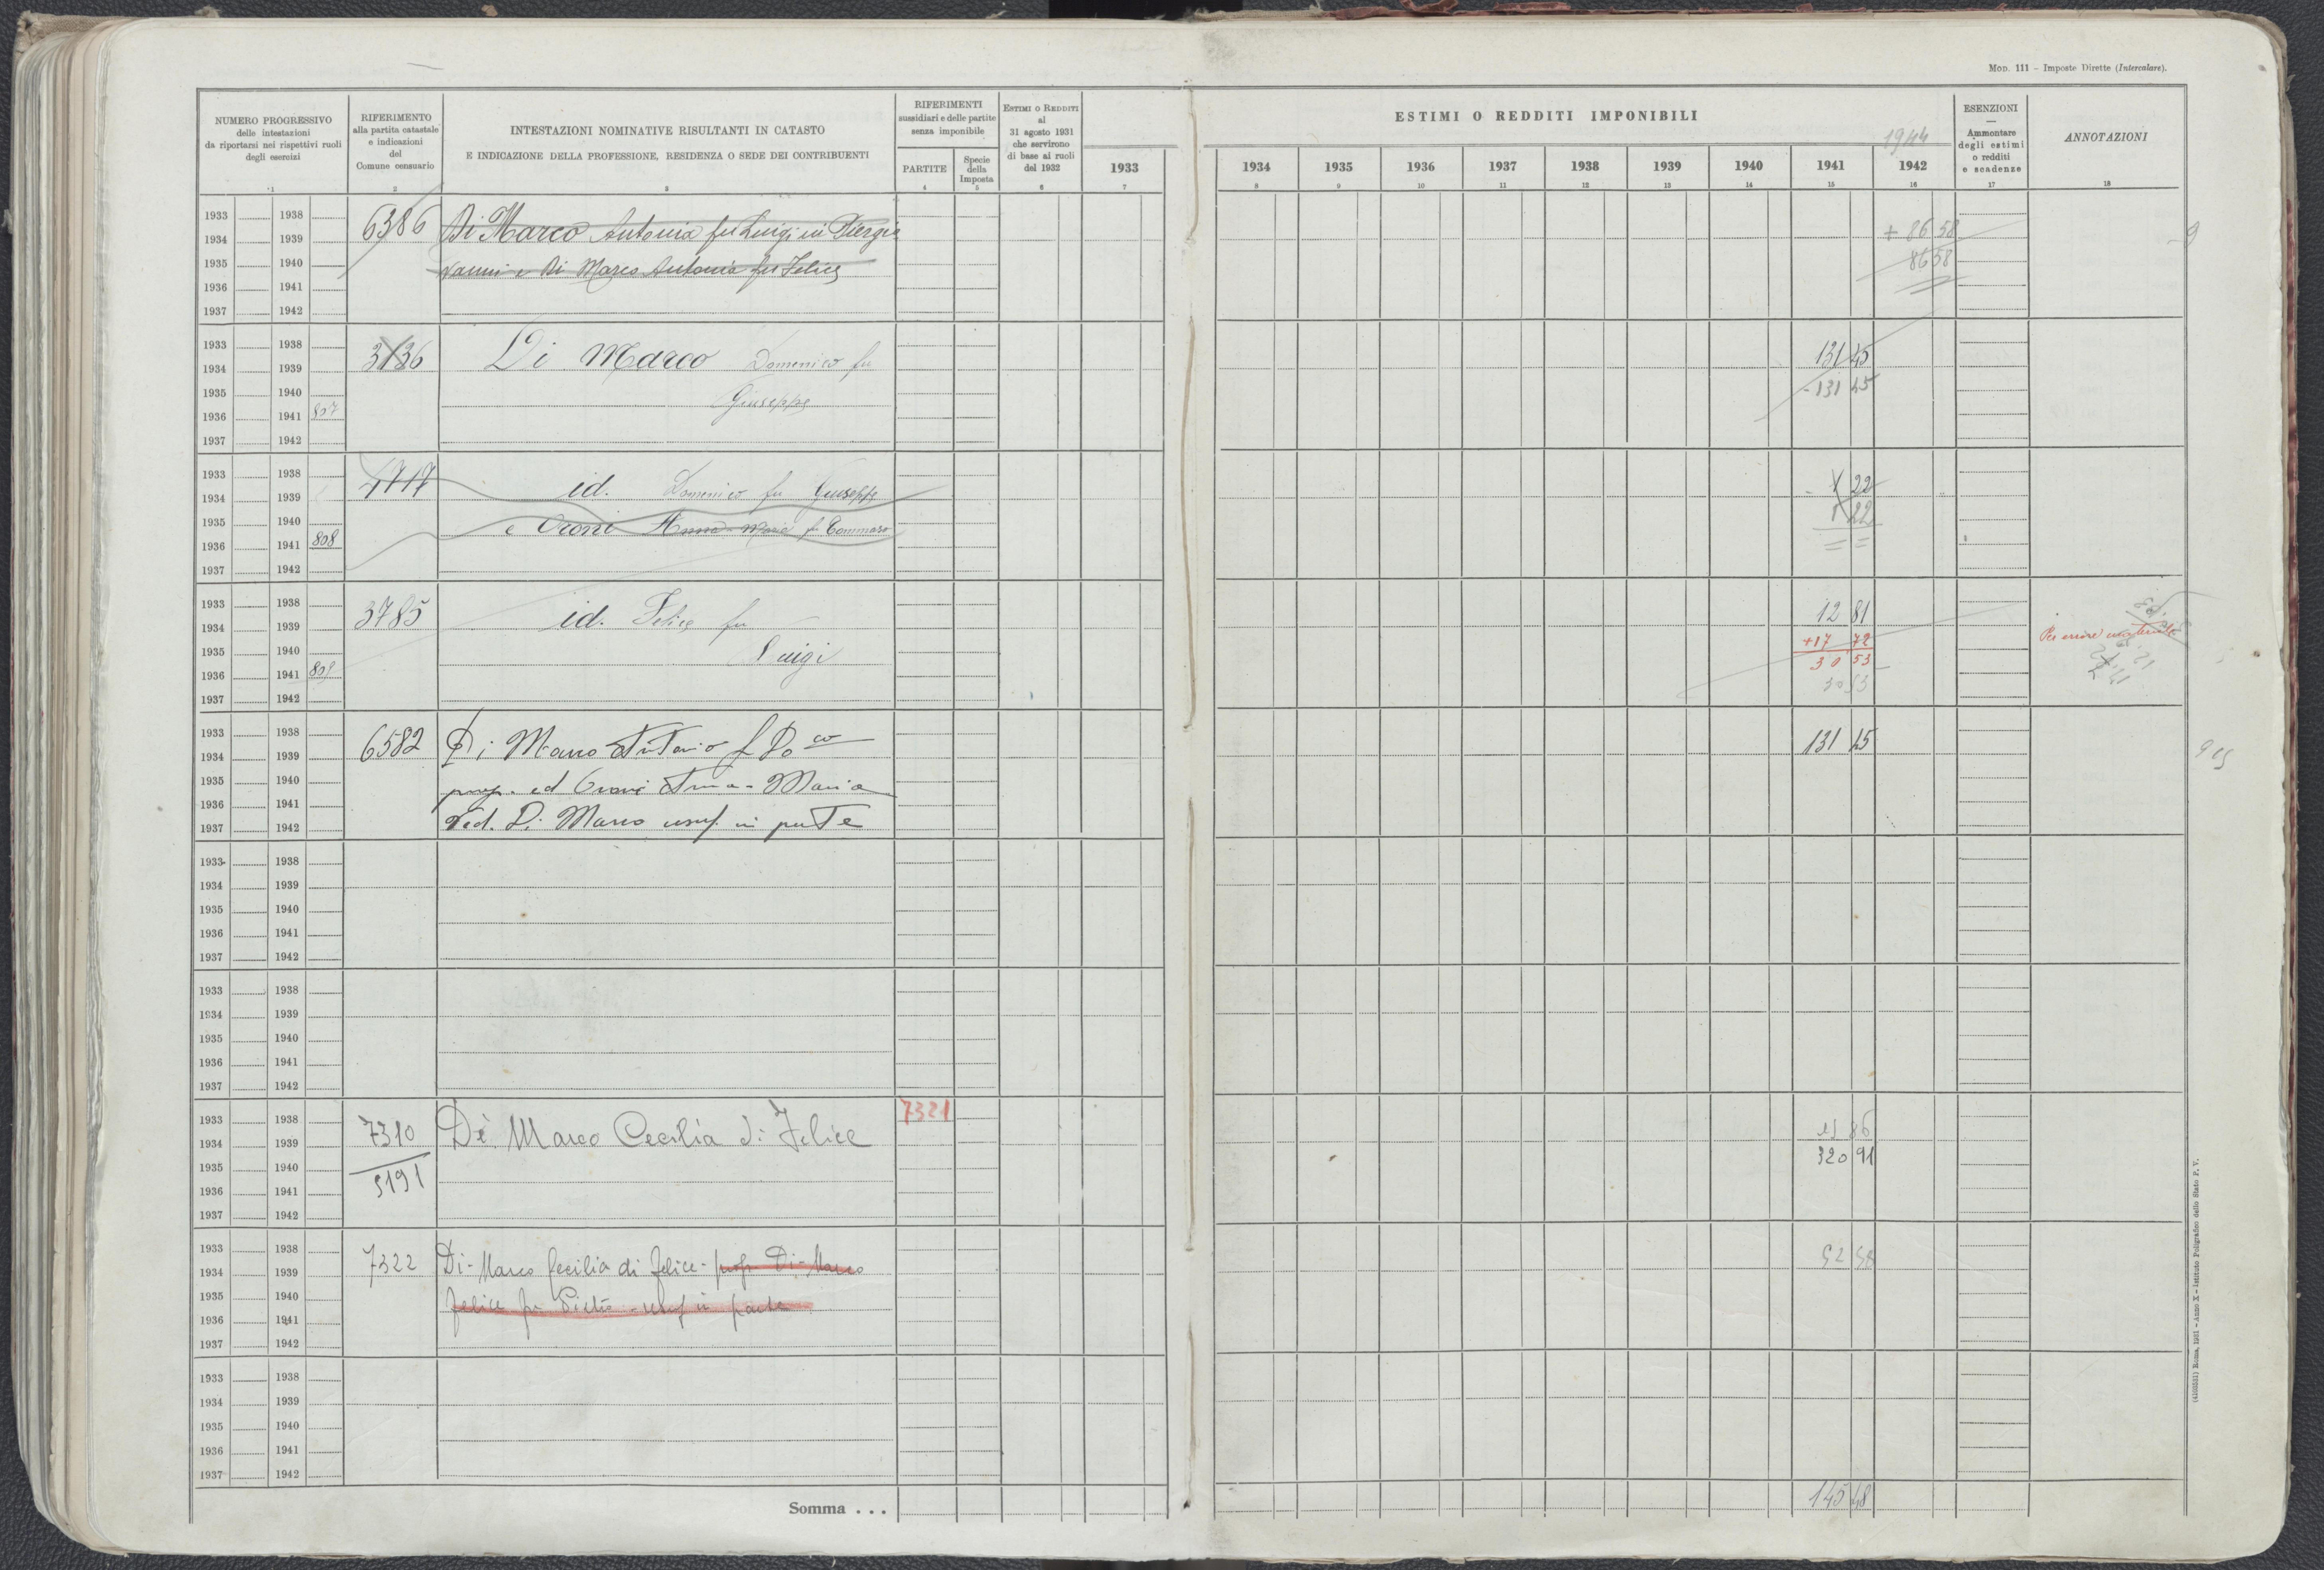 Mod. 111 - Imposte Dirette (Intercalare).
NUMERO PROGRESSIVO
delle intestazioni
da riportarsi nei rispettivi ruoli
degli esercizi
1
RIFERIMENTO
alla partita catastale
e indicazioni
del
Comune censuario
2
INTESTAZIONI NOMINATIVE RISULTANTI IN CATASTO
E INDICAZIONE DELLA PROFESSIONE, RESIDENZA O SEDE DEI CONTRIBUENTI
3
RIFERIMENTI
sussidiari e delle partite
senza imponibile
PARTITE
4
Specie
della
Imposta
5
Estimi o Redditi
al
31 agosto 1931
che servirono
di base ai ruoli
del 1932
6
1933
7
ESTIMI O REDDITI IMPONIBILI
1944
1934 1935 1936 1937 1938 1939 1940 1941 1942
8 9 10 11 12 13 14 15 16
ESENZIONI
—
Ammontare
degli estimi
o redditi
e scadenze
17
ANNOTAZIONI
18
1933 1938
1934 1939
1935 1940
1936 1941
1937 1942
6386 Di Marco Antonia fu Luigi in
Vanni e Di Marco Antonia fu Felice
+ 86 58
86 58
9
1933 1938
1934 1939
1935 1940
1936 1941 807
1937 1942
3136 Di Marco Domenico fu
Giuseppe
131 45
- 131 45
1933 1938
1934 1939
1935 1940
1936 1941 808
1937 1942
4717 id. Domenico fu Giuseppe
e Oroni Anna-Maria fu Tommaso
- 1 22
1 22
= =
1933 1938
1934 1939
1935 1940
1936 1941 809
1937 1942
3785 id. Felice fu
Luigi
12 81
+17 72
30 53
30 53
Per errore materiale
1933 1938
1934 1939
1935 1940
1936 1941
1937 1942
6582 Di Marco Antonio f Do co
prop. ed Oroni Anna-Maria
Ved. Di Marco usuf. in parte
131 45
905
1933 1938
1934 1939
1935 1940
1936 1941
1937 1942
1933 1938
1934 1939
1935 1940
1936 1941
1937 1942
1933 1938
1934 1939
1935 1940
1936 1941
1937 1942
7310
5191
Di Marco Cecilia di Felice
7321
86
320 91
1933 1938
1934 1939
1935 1940
1936 1941
1937 1942
7322 Di-Marco Cecilia di Felice - prop Di-Marco
Felice fu Pietro - usuf in parte
52 58
1933 1938
1934 1939
1935 1940
1936 1941
1937 1942
Somma . . .
145 48
(4103531) Roma, 1931 - Anno X - Istituto Poligrafico dello Stato P. V.